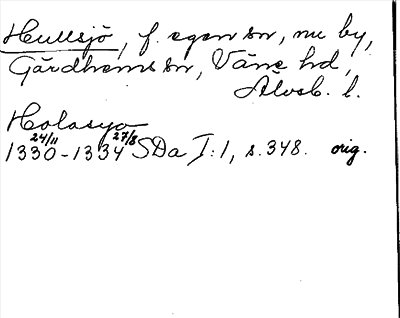 Hullsjö, f. egen sn, nu by,
Gärdhems sn, Väne hd,
Älvsb. l.
Holasyo
1330 24/11 - 1334 27/8 SDa I:1, s. 348. orig.